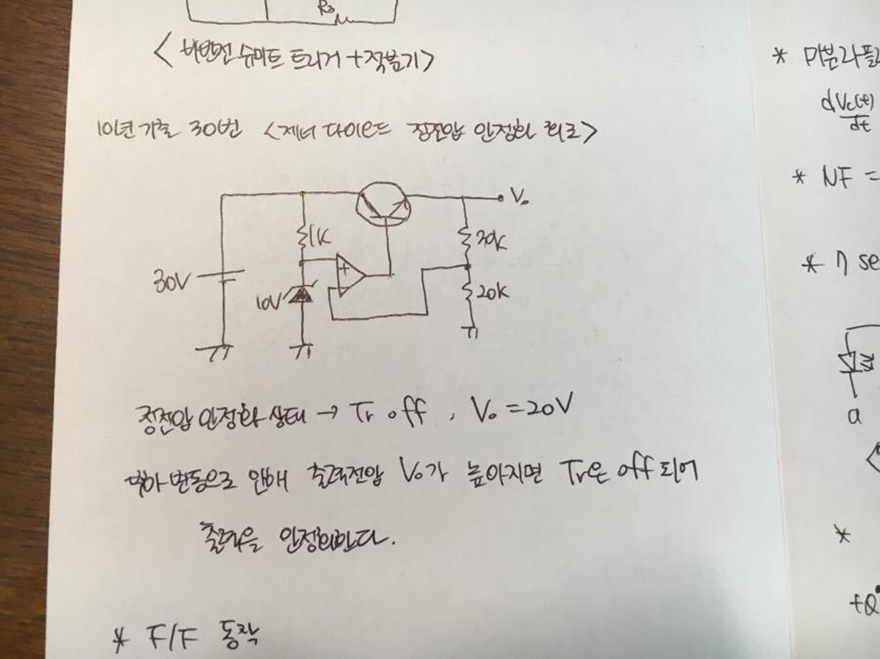 R2
<비반전 슈미트 트리거 + 적분기>
10년 기출 30번 <제너 다이오드 정전압 안정화 회로>
Vo
1K
30K
30V
+
10V
20K
정전압 안정화 상태 → Tr off, Vo = 20V
부하 변동으로 인해 출력전압 Vo가 높아지면 Tr은 off 되어
출력을 안정화한다.
* F/F 동작
* 미분
dVc(t)
dt
* NF =
* η se
a
*
+Q